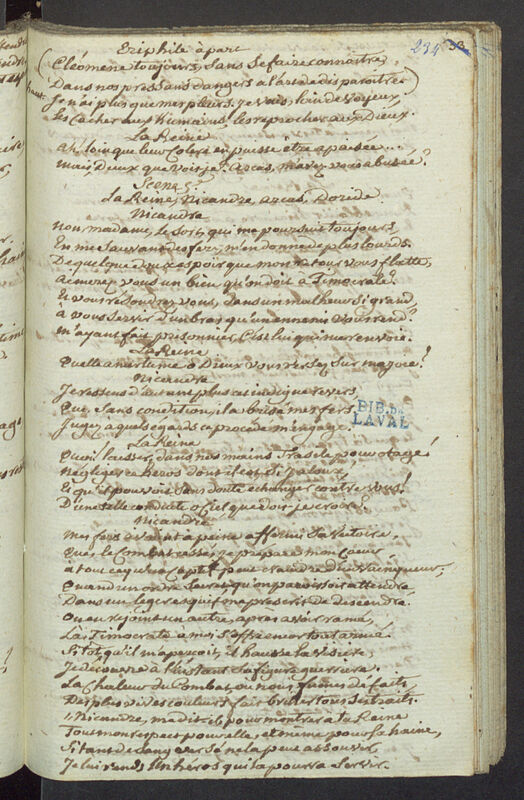 234
Eriphile à part
(Cléomene toujours, Sans Se faire connaître,
Dans nos pres Sans dangers a l'art de disparoître)
haut
Je n'ai plus que mes pleurs, je vais, loin de vos yeux,
Les Cacher aux humains, les reprocher aux Dieux.
La Reine
ah, loin que leur Colere en puisse être apaisée...
mais Dieux que vois-je? arcas, m'avez vous abusée?
Scene 5e
La Reine, Nicandre, arcas, Doride
Nicandre
Non, madame, le Sort, qui me poursuit toujours,
En me Sauvant des fers, m'en donne de plus lourds.
De quelque doux espoir que mon retour vous flatte,
aimerez vous un bien qu'on doit à Timocrate?
Et vous resoudrez vous, dans un malheur si grand,
à vous Servir d'un bras qu'un ennemi vous rend?
M'ayant fait prisonnier, C'est lui qui me renvoie.
La Reine
Quelle amertume ô Dieux vous versez Sur ma joie!
Nicandre
Je ressens d'autant plus cet indigne revers
Que, Sans condition, il a brisé mes fers.
Jugez à quels egards ce procédé m'engage.
La Reine
Quoi! laisser dans nos mains Trasile pour otage!
Negliger ce héros dont il est si jaloux,
Et qu'il pouvoit Sans doute échanger contre vous!
D'une telle conduite ô Ciel que dois-je croire?
Nicandre
Mes fers avoient à peine affermi Sa victoire,
Que, le Combat cessé, je prépare mon Coeur
à tout ce qu'un Captif peut craindre d'un vainqueur;
Quand un ordre Secret, qu'on paroissoit attendre,
Dans un leger esquif me prescrit de descendre.
On en rejoint un autre, après avoir ramé,
Là Timocrate à moi S'offre encor tout armé.
Sitot qu'il m'aperçoit, il hausse la visiere,
Je découvre à l'instant Sa figure guerriere.
La Chaleur du Combat, où nous fûmes défaits,
Des plus vives couleurs fait briller tous Ses traits.
"Nicandre, me dit-il, pour montrer à ta Reine
Tout mon respect pour elle, et même pour Sa haine,
Si tant de Sang versé ne la peut assouvir,
Je lui rends un héros qui la pourra Servir.
BIB. DE
LAVAL